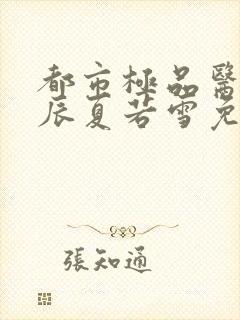 都市極品醫
辰夏若雪免
張知通